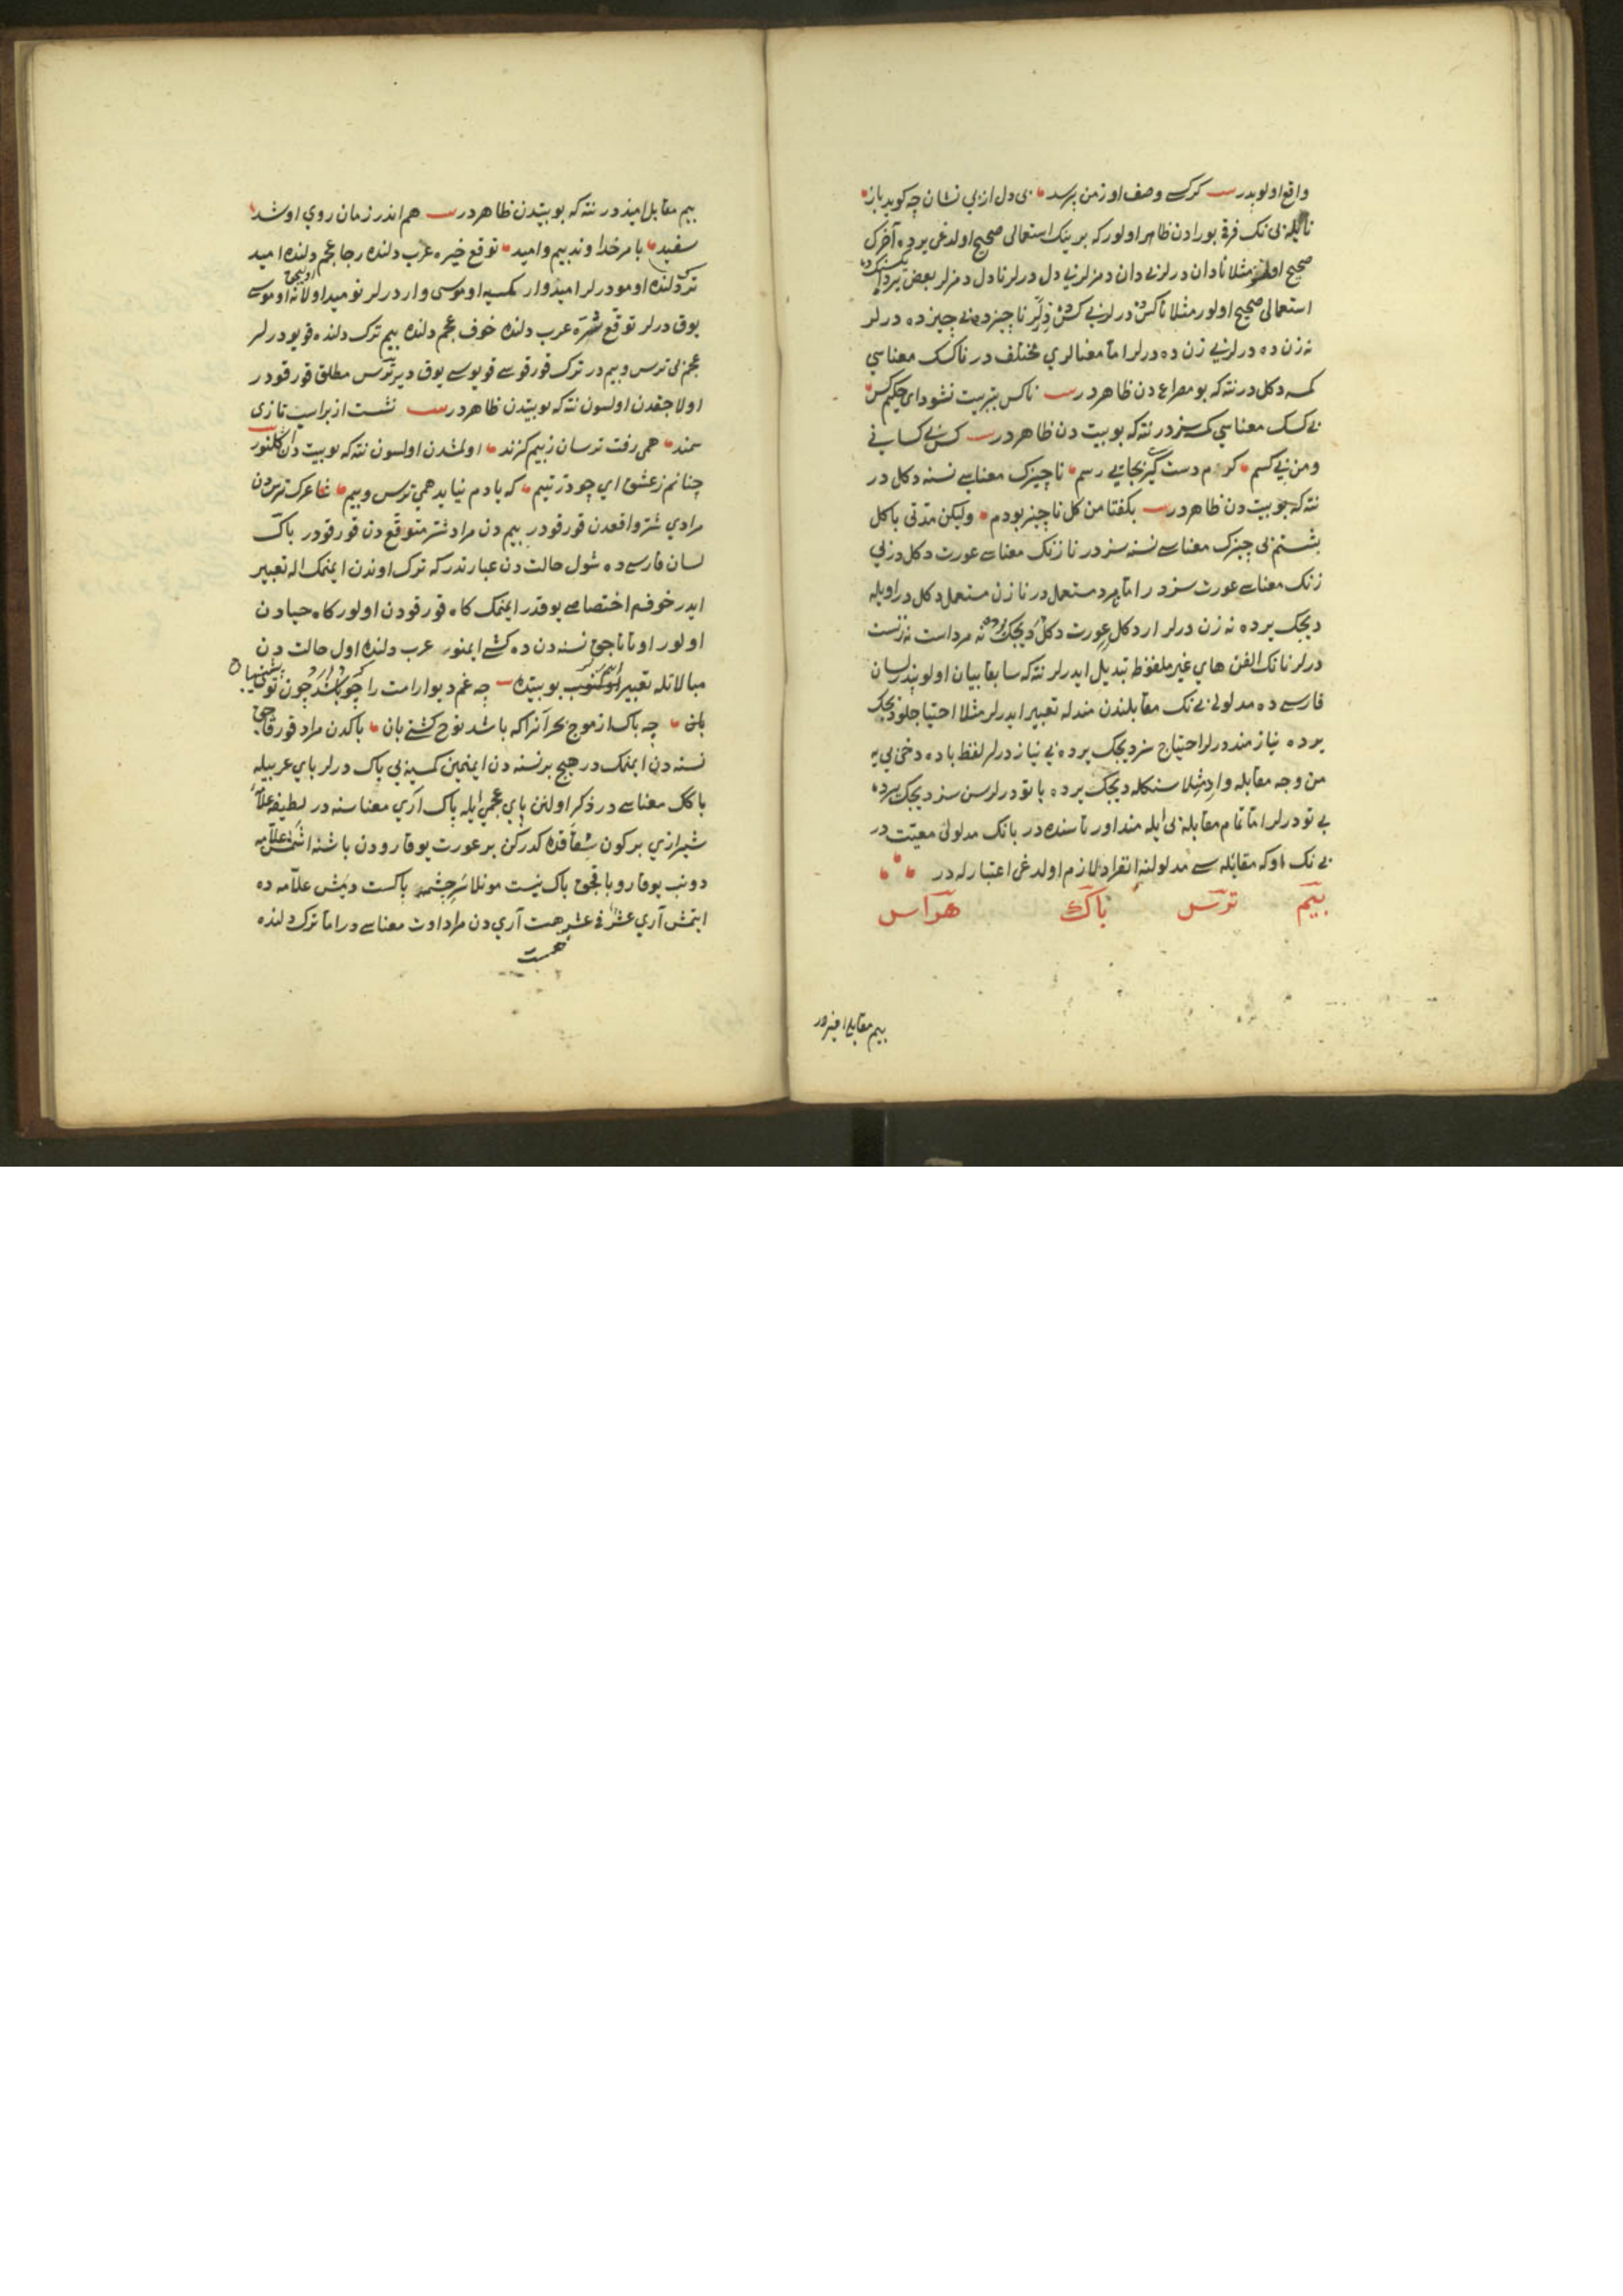 واقع اولوبدر كر كسے وصف او زمن پرسد بی دل از بی نشان چه كوید باز
نایله بی نك فرقی بورادن ظاهر اولور كه برینك استعمالی صحیح اولدغی یرده آخرك
صحیح اولمز مثلا نادان درلر بے دان دمزلر بے دل درلر نادل دمزلر بعض یرده
استعمالی صحیح اولور مثلا ناكس درلر بے كس دیرلر ناچیز ده بے چیز ده درلر
نه زن ده درلر بے زن ده درلر اما معنالری مختلف در ناكسك معناسی
كمسه دكل در نته كه بو مصراع دن ظاهر در ناكس بتربیت نشود ای حكیم كس
بے كسك معناسی كمسه سز در نته كه بو بیت دن ظاهر در كس بے كسانی
و من بے كسم كرم دست گیر بجایی رسم ناچیزك معناسے نسنه دكل در
نته كه بو بیت دن ظاهر در بكفتا من كل ناچیز بودم ولیكن مدتی با كل
نشستم بی چیزك معناسے نسنه سز در نا زنك معناسے عورت دكل در بی
زنك معناسے عورت سز در اما مستعمل در نا زن مستعمل دكل در اویله
دیجك یرده نه زن درلر ار دكل عورت دكل دیجك یرده نه مرداست نه زنست
درلر نانك الفن های غیر ملفوظه تبدیل ایدرلر نته كه سابقا بیان اولوبدر لسان
فارسے ده مدلولی بی نك مقابلندن مندله تعبیر ایدرلر مثلا احتیاجلو دیجك
یرده نیازمند درلر احتیاج سز دیجك یرده بے نیاز درلر لفظ با ده دخی بی یه
من وجه مقابله وار مثلا سنكله دیجك یرده با تو درلر سن سز دیجك یرده
بے تو درلر اما تمام مقابله بی ایله منداورتاسنده در بانك مدلولی معیت در
بی نك اوكه مقابله سے مدلولنه انفراد لازم اولدغی اعتبارله در
بیم ترس باك هراس
بیم مقابل امیذ در
بیم مقابل امیذ در نته كه بو بیتدن ظاهر در هم اندر زمان روی او شد
سفید با مر خداوند بیم و امید توقع خیره عرب دلنده رجا عجم دلنده امید
ترك دلنده اومو درلر امیدوار كمسیه اومسی وار درلر نومید اولانه اومسی
یوق درلر توقع شره عرب دلنده خوف عجم دلنده بیم ترك دلنده قویو درلر
عجم بی ترس و بیم در ترك قورقوسے قویوسے یوق دیر ترس مطلق قورقودر
اولاجقدن اولسون نته كه بو بیتدن ظاهر در نشست از بر اسپ تازی
سمند همی رفت ترسان ز بیم كزند اولمشدن اولسون نته كه بو بیت دن اكلنور
چنانم ز عشق ای چو در یتیم كه یادم نیاید همی ترس و بیم شاعرك ترس دن
مرادی شر واقعدن قورقودر بیم دن مراد شر متوقع دن قورقودر باك
لسان فارسے ده شول حالت دن عبارتدر كه ترك اوندن ایمنمك اله تعبیر
ایدر خوفه اختصاصے یوقدر ایمنمك كاه قورقودن اولور كاه حیادن
اولور اوتانا جق نسنه دن ده كشے ایمنور عرب دلنده اول حالت دن
مبالاتله تعبیر اولنور بو بیتده چه غم دیوار امت را چو باشد چون تو پشتیبان
چه باك از موج بحر آنرا كه باشد نوح كشتے بان باكدن مراد قورقاجق
نسنه دن ایمنمك در هیچ بر نسنه دن ایمنمین كمسیه بی باك درلر بای عربیله
باكك معناسے در ذكر اولنن پای عجمی ایله پاك اری معناسنه در لطیفه علامه
شیرازی بر كون شقاقده كدركن بر عورت یوقارودن باشنه اشمش علامه
دونب یوقارو باقجق باك نیست مونلا سرچشمه پاكست دیمش علامه ده
ایتمش آری عشر فی عشر هست آری دن مراد اوت معناسے در اما ترك دلنده
هست